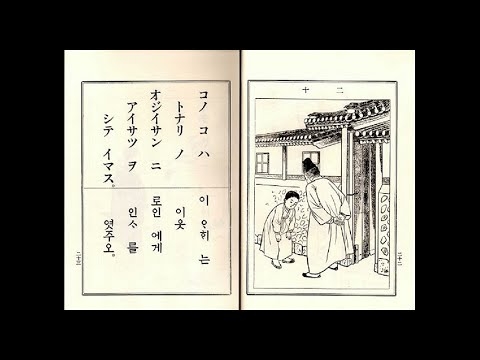 二十
二十二
コノ コ ハ
トナリ ノ
オジイサン ニ
アイサツ ヲ
シテ イマス。
이 ᄋᆞᄒᆡ 는
이웃
로인 에게
인ᄉᆞ 를
엿주오。
二十三